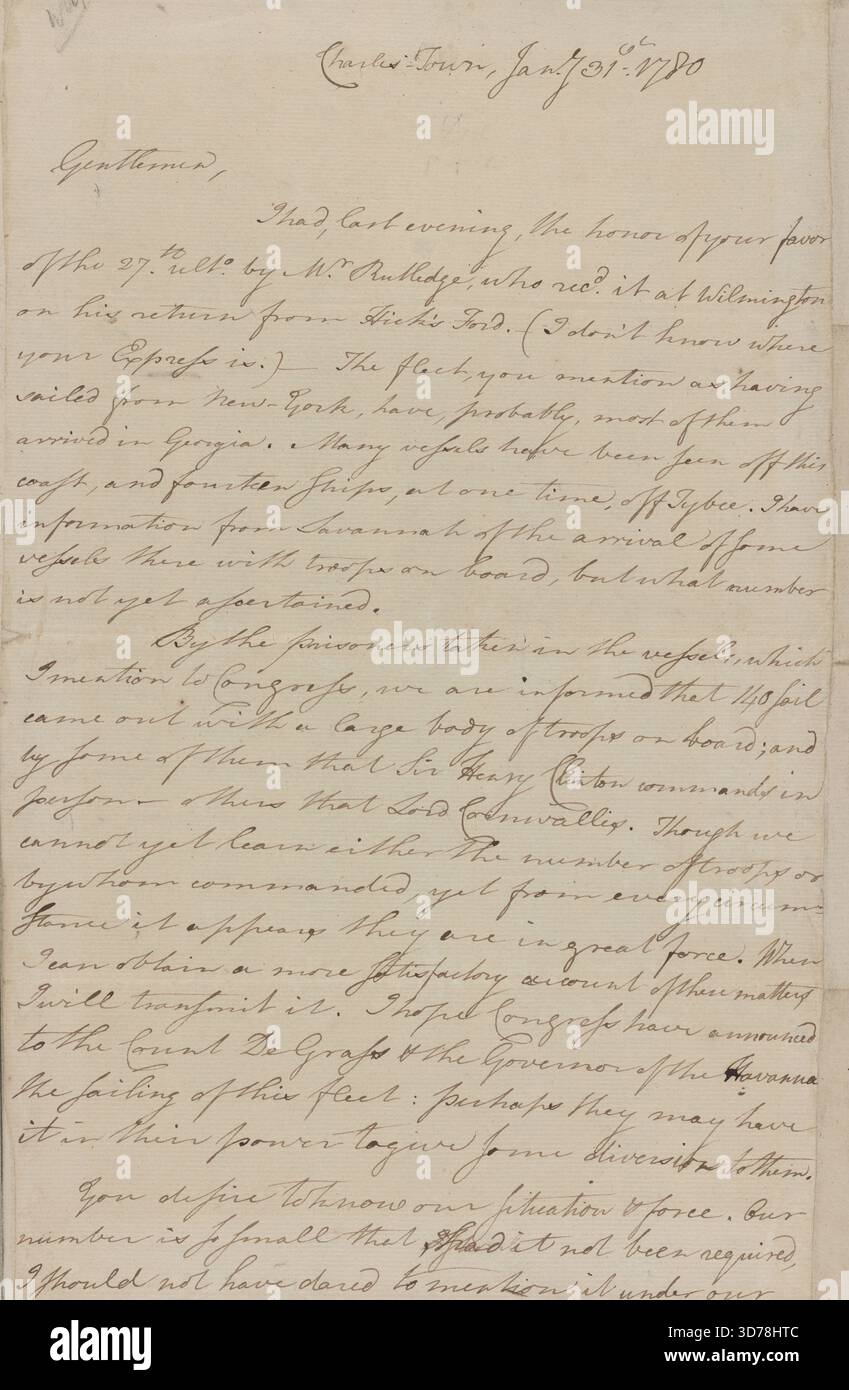 Charles-Town, Jany 31st. 1780
Gentlemen,
I had, last evening, the honor of your favor
of the 27.th ulto. by Mr Rutledge, who recd. it at Wilmington
on his return from Hick's Ford. (I don't know where
your Express is.) — The fleet, you mention as having
sailed from New-York, have, probably, most of them
arrived in Georgia. Many vessels have been seen off this
coast, and fourteen ships, at one time, off Tybee. I have
information from Savannah of the arrival of some
vessels there with troops on board, but what number
is not yet ascertained.
By the prisoners taken in the vessels, which
I mention to Congress, we are informed that 140 sail
came out with a large body of troops on board; and
by some of them that Sir Henry Clinton commands in
person — others that Lord Cornwallis. Though we
cannot yet learn either the number of troops or
by whom commanded, yet from every circum-
stance it appears they are in great force. When
I can obtain a more satisfactory account of these matters
I will transmit it. I hope Congress have announced
to the Count De Grass & the Governor of the Havanna
the sailing of this fleet: perhaps they may have
it in their power to give some diversion to them.
You desire to know our situation & force. Our
number is so small that had it not been required,
I should not have dared to mention it under our
alamy
Image ID: 3D78HTC
www.alamy.com